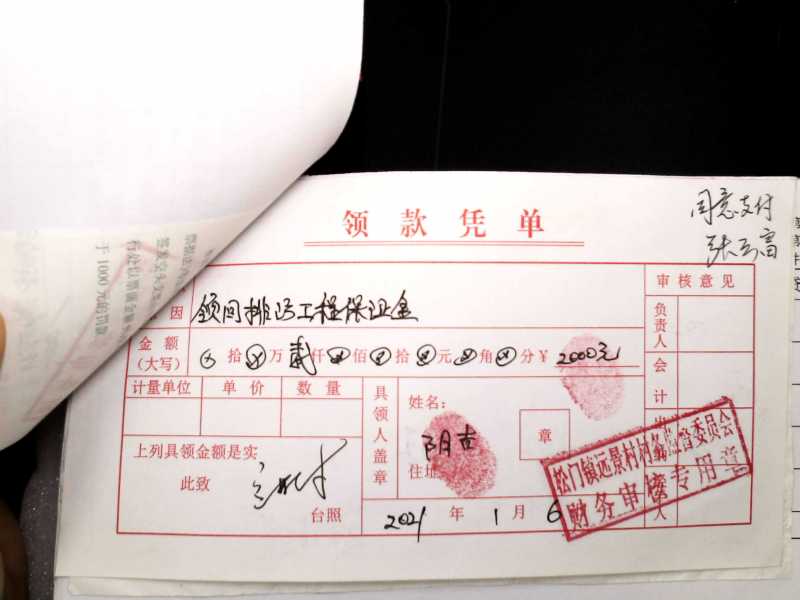 领款凭单
同意支付
因
领回排污工程保证金
审核意见
金额
(大写)
拾 万 贰仟 佰 拾 元 角 分 ¥ 2000元
负责人
计量单位 单价 数量
会计
具领人盖章
姓名:
阴吉
章
住址
上列具领金额是实
此致
台照
2021 年 1 月 6
松门镇远景村村务监管委员会
财务审核专用章
人
于1000元的罚款